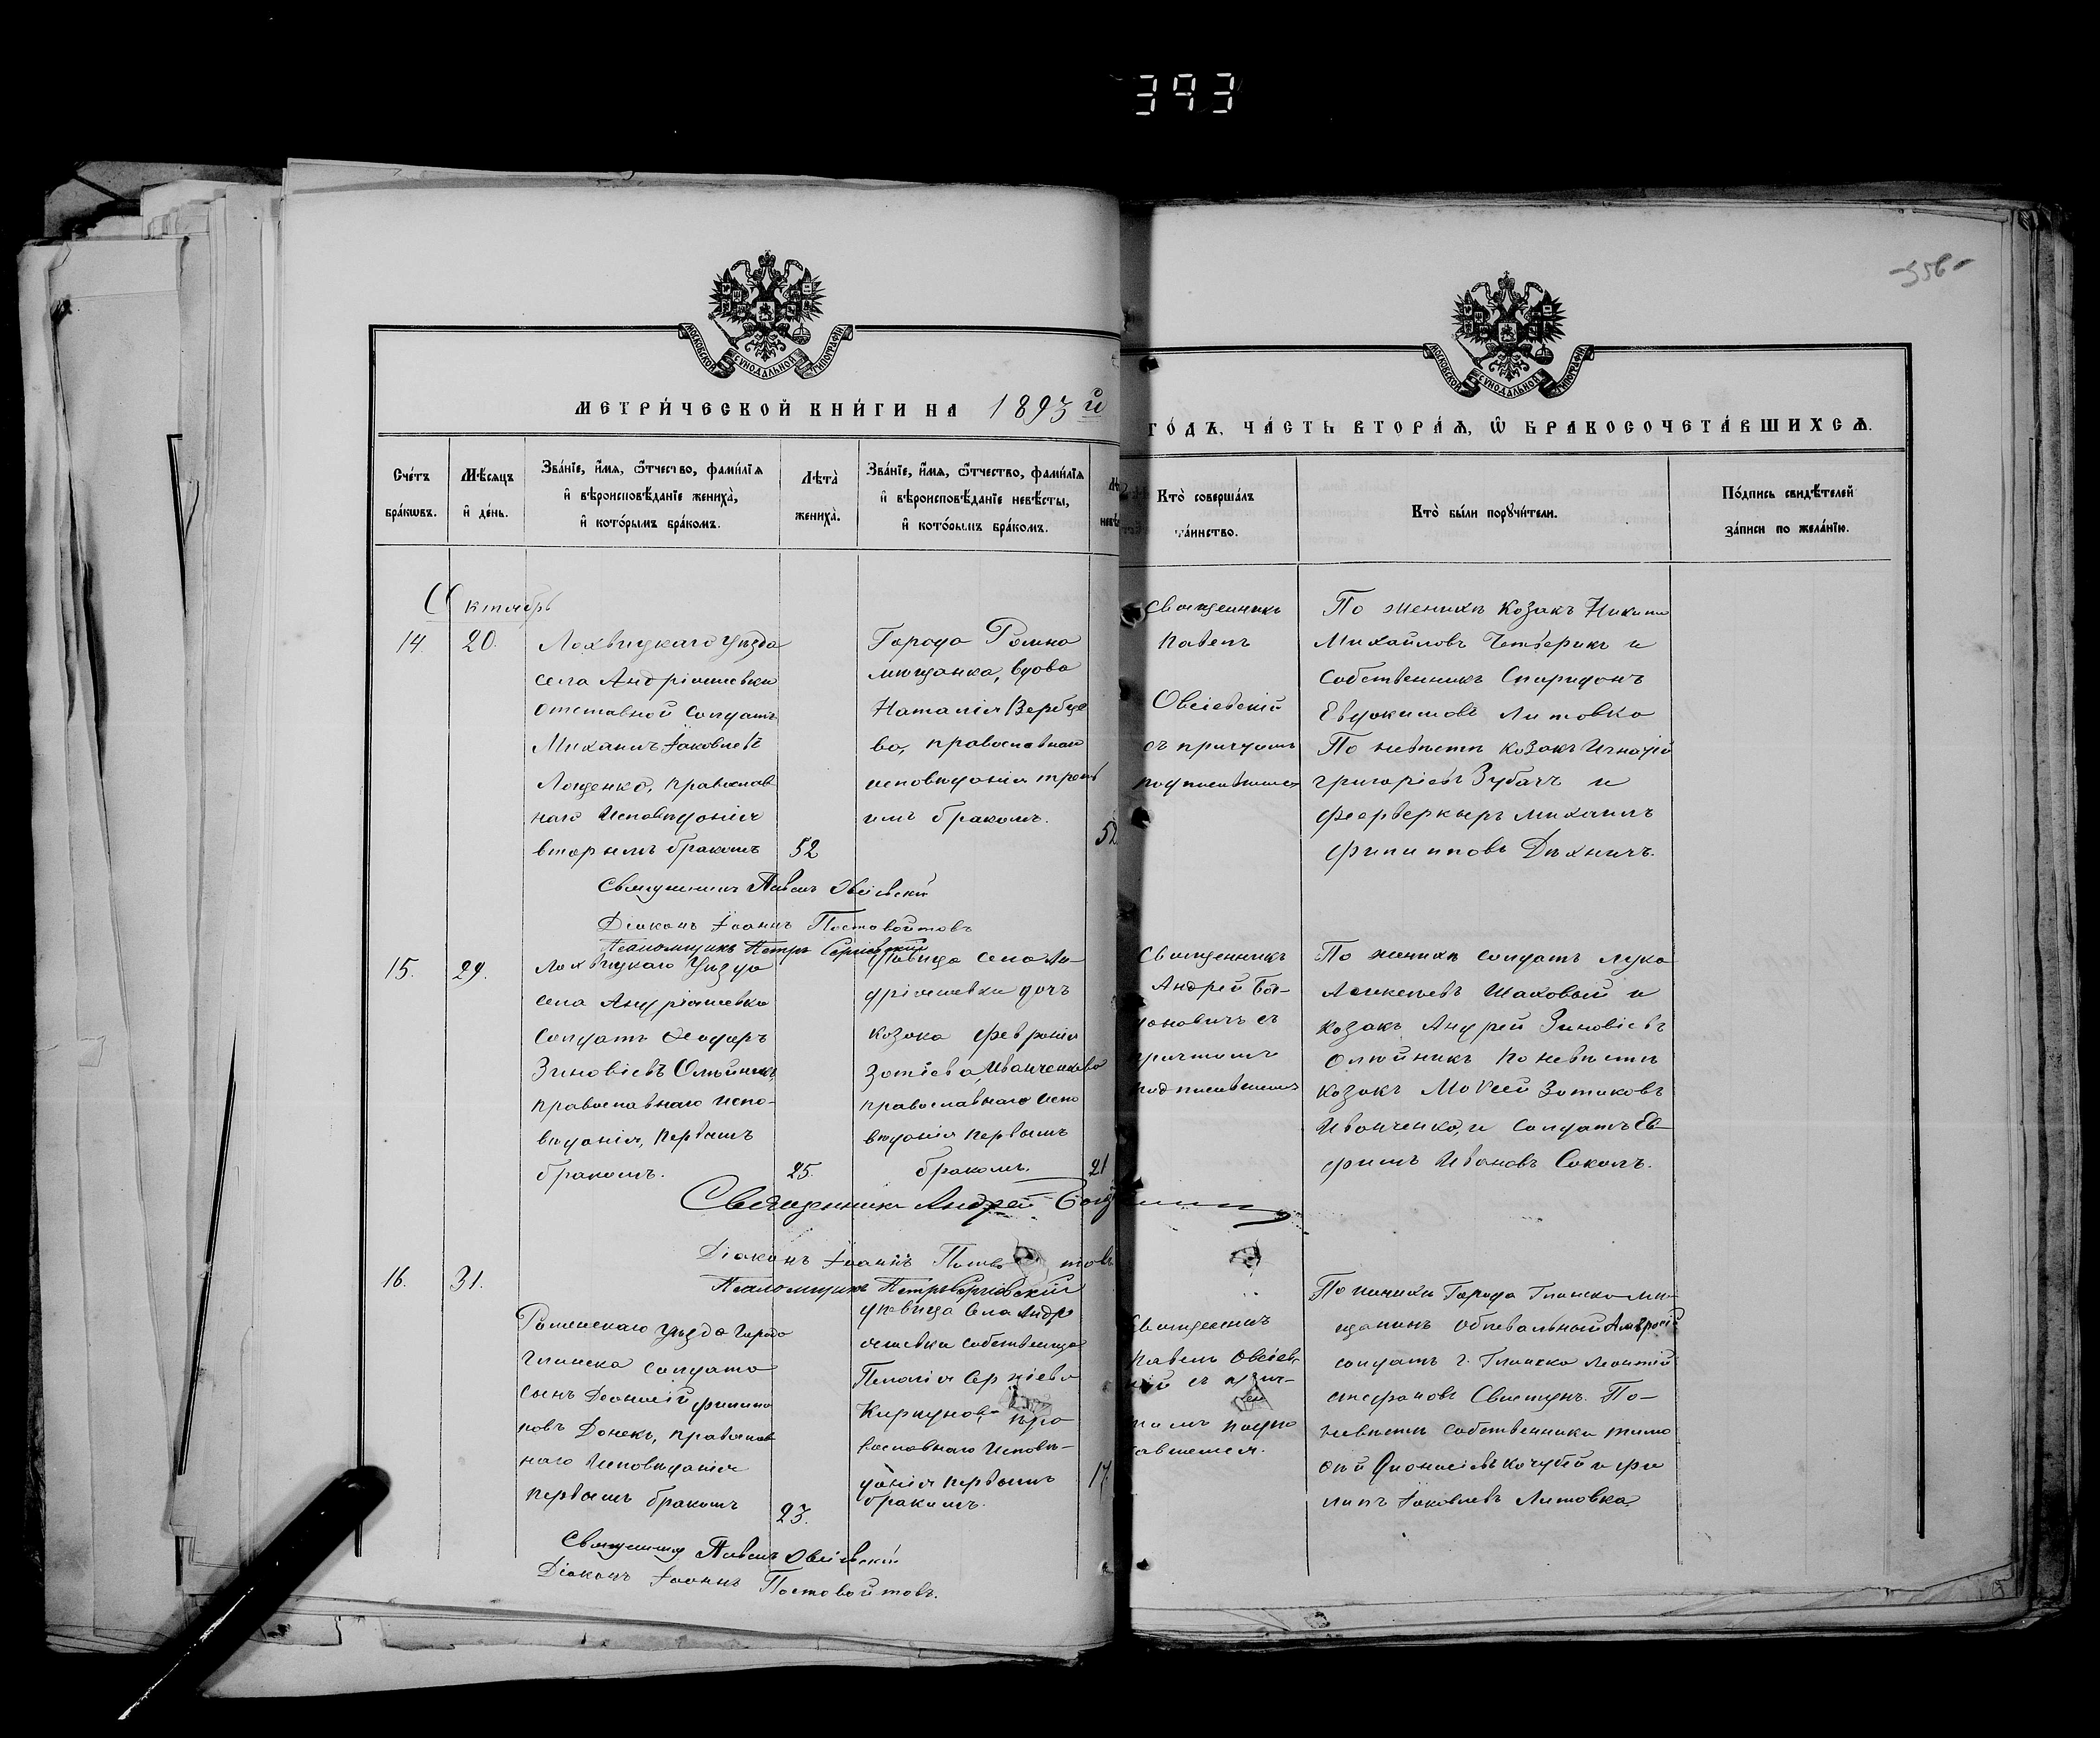 393
556
МОСКОВСКОЙ СУНОДАЛЬНОЙ ТИПОГРАФІИ
МОСКОВСКОЙ СУНОДАЛЬНОЙ ТИПОГРАФІИ
МЕТРИ́ЧЕСКОЙ КНИ́ГИ НА 1893 й
ГО́ДЪ, ЧА́СТЬ ВТОРА́Ѧ, Ѿ БРАКОСОЧЕТА́ВШИХСѦ.
Сче́тъ бра́кѡвъ.
Мѣ́сяцъ и҆ де́нь.
Зва́нїе, и҆́мя, ѻ҆́тчество, фами́лїя
и҆ вѣроисповѣ́данїе жениха̀,
и҆ кото́рымъ бра́комъ.
Лѣ́та̀ жениха̀.
Зва́нїе, и҆́мя, ѻ҆́тчество, фами́лїя
и҆ вѣроисповѣ́данїе невѣ́сты,
и҆ кото́рымъ бра́комъ.
Кто̀ соверша́лъ
та́инство.
Кто̀ бы́ли порꙋчи́тели.
По́дпись свидѣ́телей
за́писи по жела́нїю.
Октябрь
14. 20.
Лохвицкаго уѣзда
села Андріяшевки
отставной солдатъ
Михаилъ Іаковлевъ
Лященко, православ
наго исповѣданія
вторымъ бракомъ 52
Города Ромна
мѣщанка, вдова
Наталія Вербиц
ва, православнаго
исповѣданія треть
имъ бракомъ. 52
Священникъ
Павелъ
Овсіевскій
съ причтомъ
По женихѣ козакъ Никита
Михайловъ Четверикъ и
собственникъ Спиридонъ
Евдокимовъ Литовка
По невѣстѣ козакъ Игнатій
Григоріевъ Зубачъ и
феерверкеръ Михаилъ
Филипповъ Дахничъ.
Священникъ Павелъ Овсіевскій
Діаконъ Іоаннъ Постовойтовъ
Псаломщикъ Петръ Сергіевскій
15. 29.
Лохвицкаго уѣзда
села Андріяшевки
солдатъ Ѳеодоръ
Зиновіевъ Олѣйникъ,
православнаго испо-
вѣданія, первымъ
бракомъ. 25.
дѣвица села Ан-
дріяшевки дочь
козака Февронія
Зотіева Иванченкова
православнаго испо
вѣданія первымъ
бракомъ. 21
Священникъ
Андрей
съ
причтомъ
По женихѣ солдатъ Лука
Алексѣевъ Шаховый и
козакъ Андрей Зиновіевъ
Олѣйникъ по невѣстѣ
козакъ Моѵсей Зотиковъ
Иванченко, и солдатъ Еѳ-
фимъ Ивановъ Соколъ.
Священникъ Андрей
Діаконъ Іоаннъ
Псаломщикъ Петръ Сергіевскій
16. 31.
Роменскаго уѣзда города
Глинска солдата
сынъ Діонисій Филип
повъ Донекъ, православ
наго исповѣданія
первымъ бракомъ 23.
дѣвица села Андрі
яшевки собственница
Пелагія Сергіева
пра
вославнаго исповѣ-
данія первымъ
бракомъ. 17.
Священникъ
Павелъ Овсіев-
съ прич-
По женихѣ города Глинска мѣ-
щанинъ
солдатъ г. Глинска Леонтій
Стефановъ Свистунъ. По-
невѣстѣ собственники Тимо
ѳей Діонисіевъ Кочубей и Фи
липъ Іаковлевъ Литовка.
Священникъ Павелъ Овсіевскій
Діаконъ Іоаннъ Постовойтовъ.